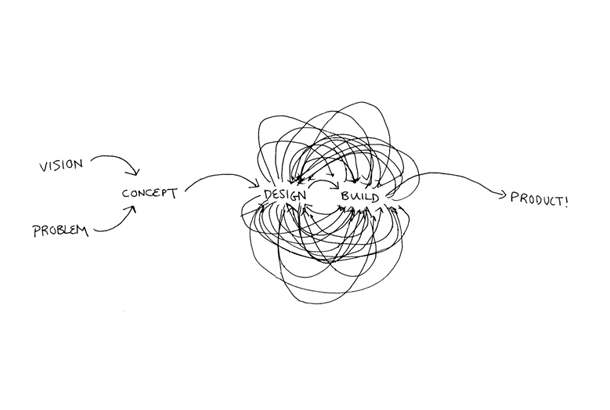 VISION
PROBLEM
CONCEPT
DESIGN
BUILD
PRODUCT!